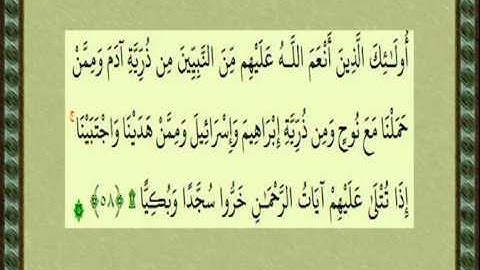 أُولَـٰئِكَ الَّذِينَ أَنْعَمَ اللَّـهُ عَلَيْهِم مِّنَ النَّبِيِّينَ مِن ذُرِّيَّةِ آدَمَ وَمِمَّنْ
حَمَلْنَا مَعَ نُوحٍ وَمِن ذُرِّيَّةِ إِبْرَاهِيمَ وَإِسْرَائِيلَ وَمِمَّنْ هَدَيْنَا وَاجْتَبَيْنَا ۚ
إِذَا تُتْلَىٰ عَلَيْهِمْ آيَاتُ الرَّحْمَـٰنِ خَرُّوا سُجَّدًا وَبُكِيًّا ۩ ﴿٥٨﴾